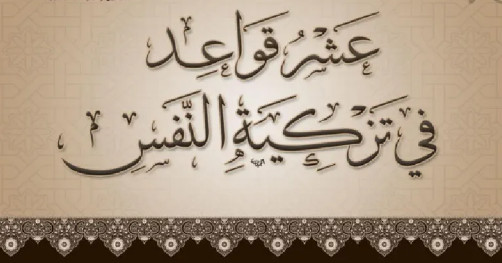 عَشْرُ قَوَاعِد
فِي تَزْكِيَةِ النَّفْسِ